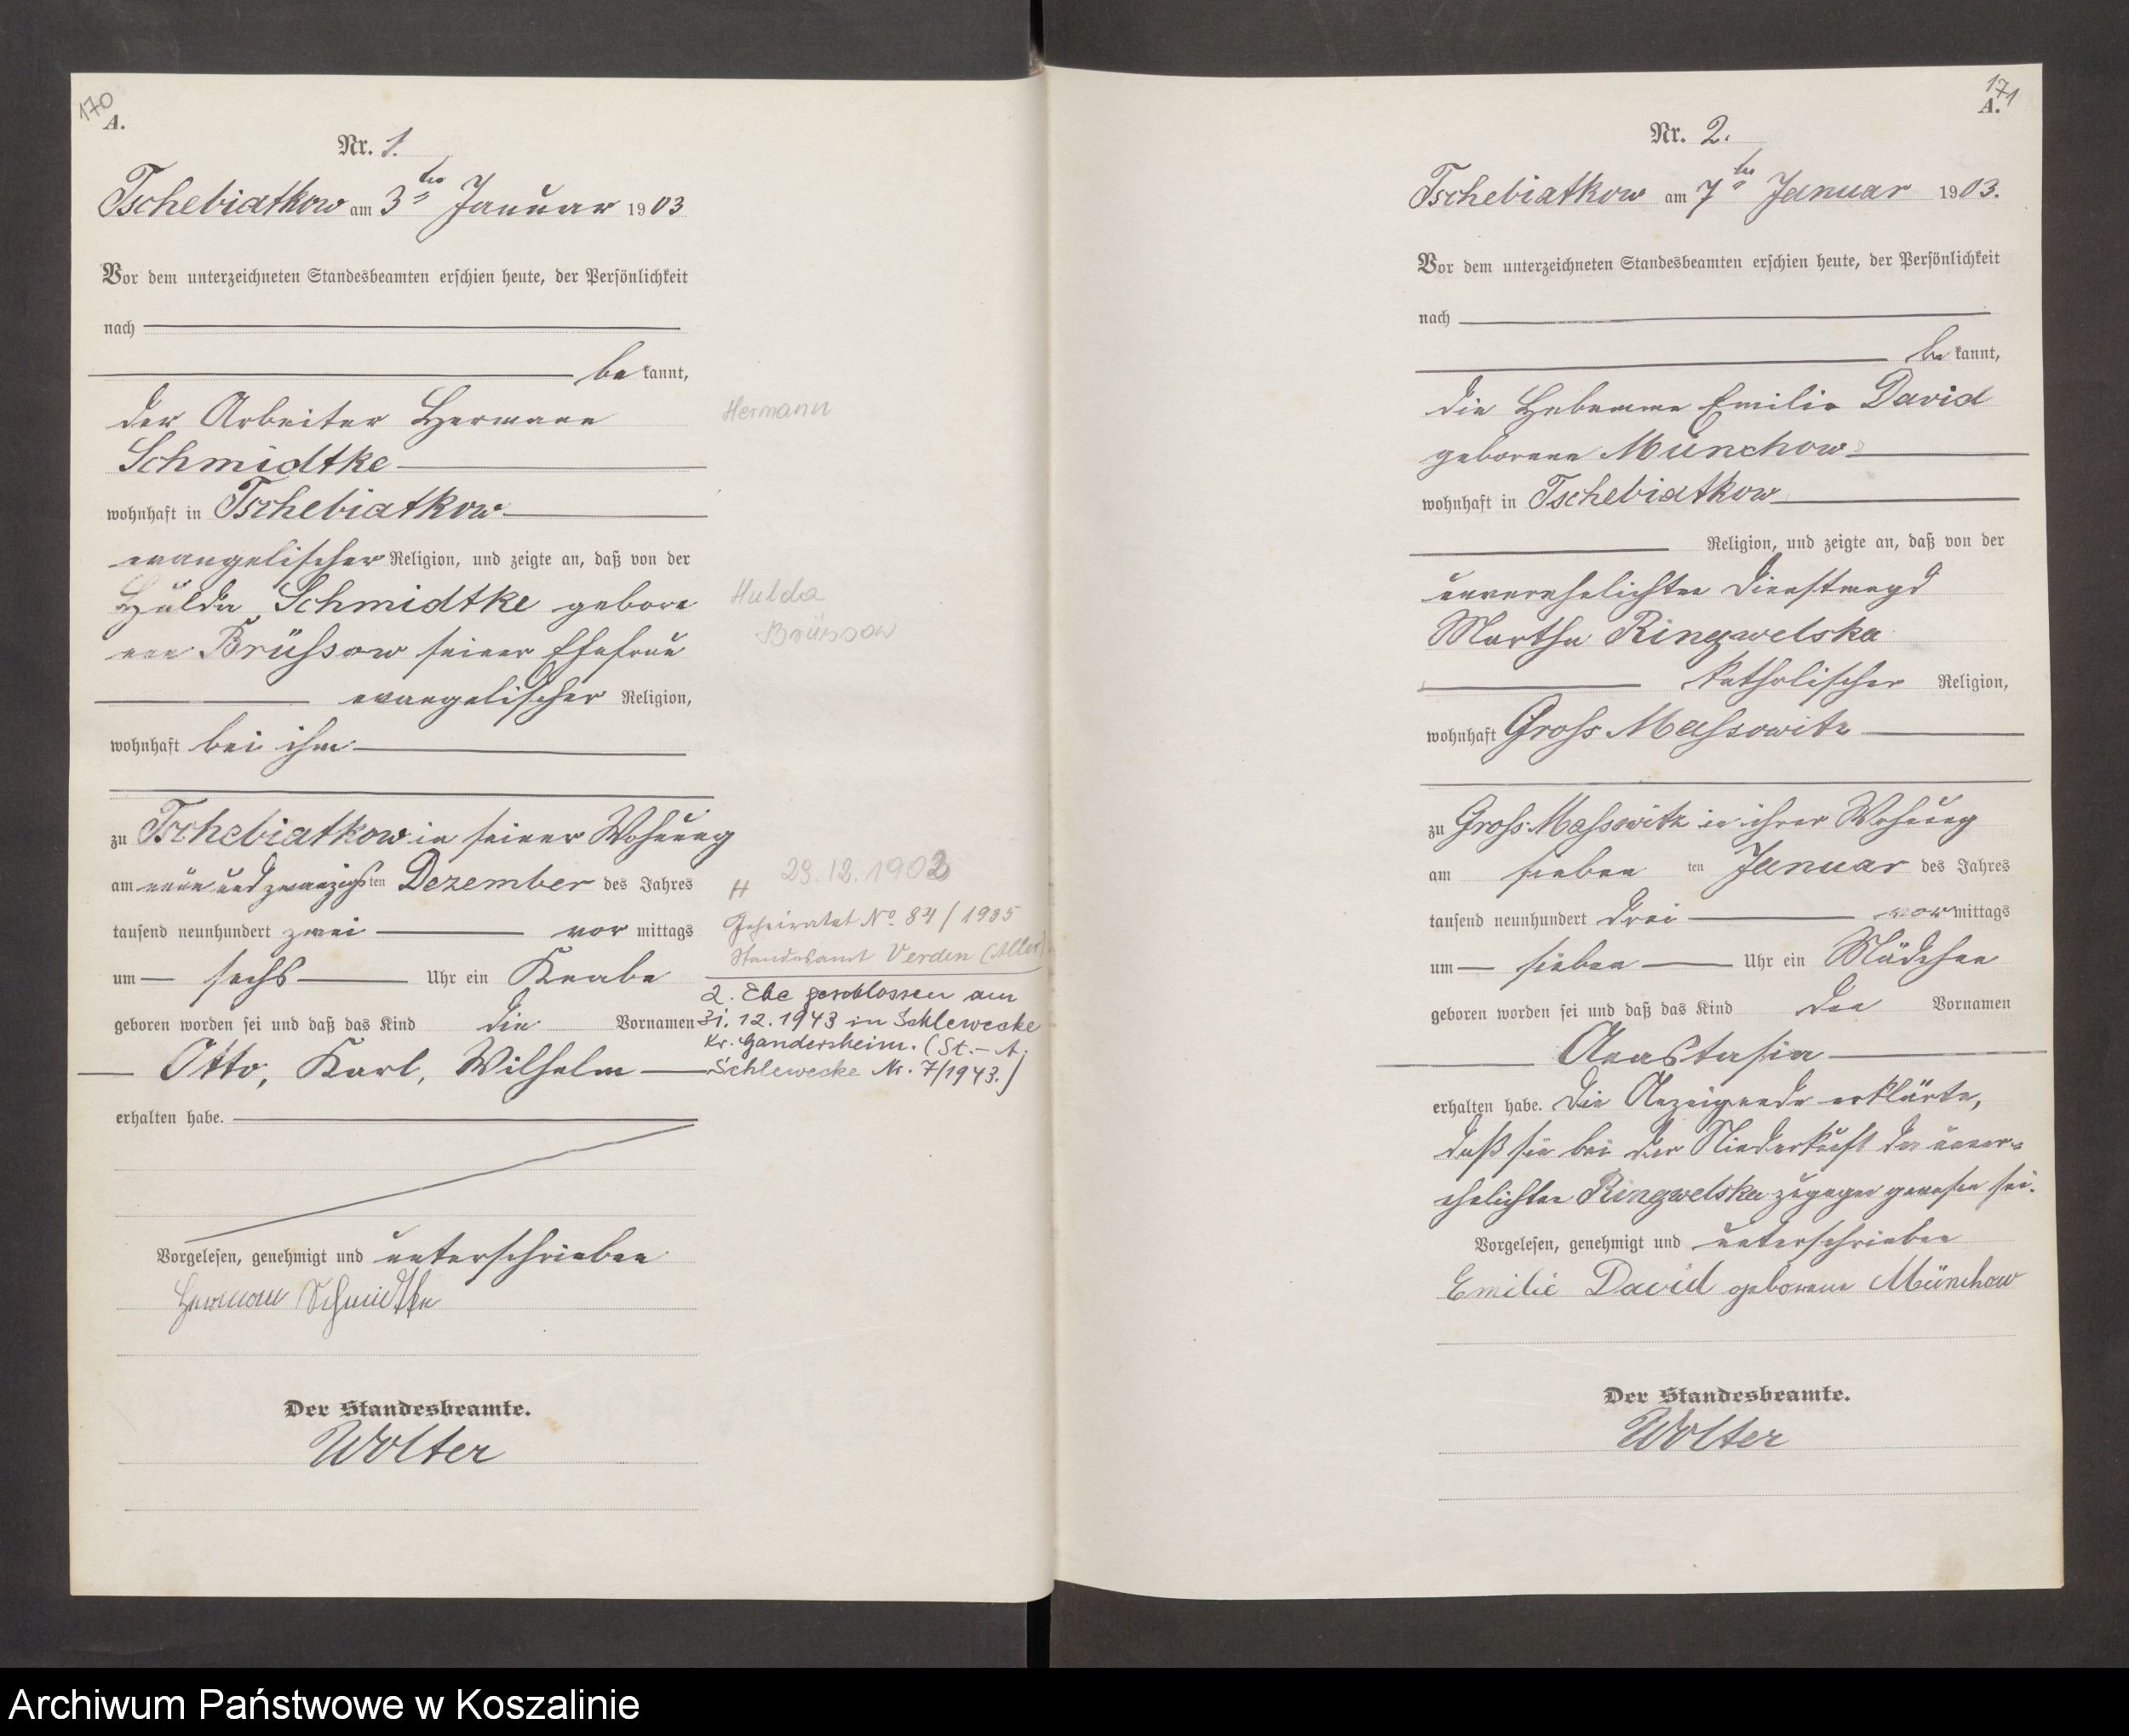 170
A.
Nr. 1.
Tschebiatkow am 3ten Januar 1903
Vor dem unterzeichneten Standesbeamten erschien heute, der Persönlichkeit
nach
be kannt,
der Arbeiter Hermann
Schmidtke
wohnhaft in Tschebiatkow
evangelischer Religion, und zeigte an, daß von der
Hulda Schmidtke gebore
nen Brüssow seiner Ehefrau
evangelischer Religion,
wohnhaft bei ihm
zu Tschebiatkow in seiner Wohnung
am neun und zwanzigsten Dezember des Jahres
tausend neunhundert zwei vor mittags
um sechs Uhr ein Knabe
geboren worden sei und daß das Kind die Vornamen
Otto, Karl, Wilhelm
erhalten habe.
Vorgelesen, genehmigt und unterschrieben
Hermann Schmidtke
Der Standesbeamte.
Wolter
Hermann
Hulda
Brüssow
29.12.1902
H
Geheiratet No. 84/1935
Standesamt Verden (Aller)
2. Ehe geschlossen am
31.12.1943 in Schlewecke
Kr. Gandersheim. (St.-A.
Schlewecke Nr. 7/1943.)
171
A.
Nr. 2.
Tschebiatkow am 7ten Januar 1903.
Vor dem unterzeichneten Standesbeamten erschien heute, der Persönlichkeit
nach
be kannt,
die Hebamme Emilie David
geborene Münchow
wohnhaft in Tschebiatkow
Religion, und zeigte an, daß von der
unverehelichten Dienstmagd
Martha Ringwelska
katholischer Religion,
wohnhaft Gross Massowitz
zu Gross Massowitz in ihrer Wohnung
am sieben ten Januar des Jahres
tausend neunhundert drei vor mittags
um sieben Uhr ein Mädchen
geboren worden sei und daß das Kind den Vornamen
Anastasia
erhalten habe. Die Anzeigende erklärte,
daß sie bei der Niederkunft der unver-
ehelichten Ringwelska zugegen gewesen sei.
Vorgelesen, genehmigt und unterschrieben
Emilie David geborene Münchow
Der Standesbeamte.
Wolter
Archiwum Państwowe w Koszalinie